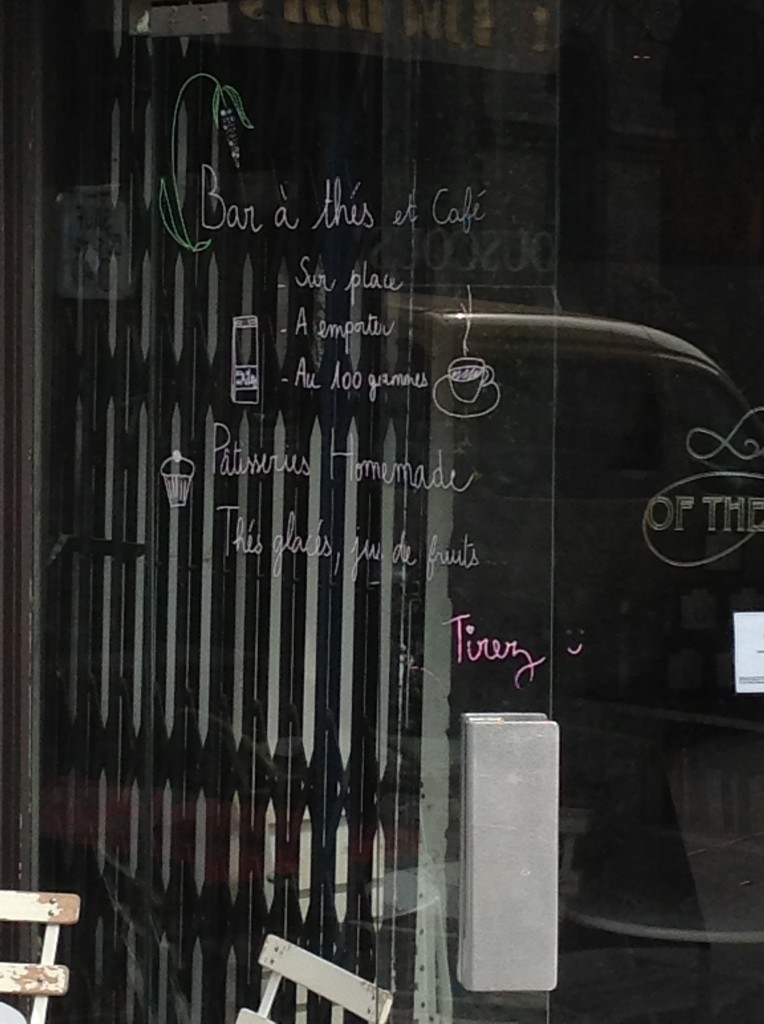 Bar à thés et Café
- Sur place
- A emporter
- Au 100 grammes
Pâtisseries Homemade
Thés glacés, jus de fruits
Tirez
OF THE